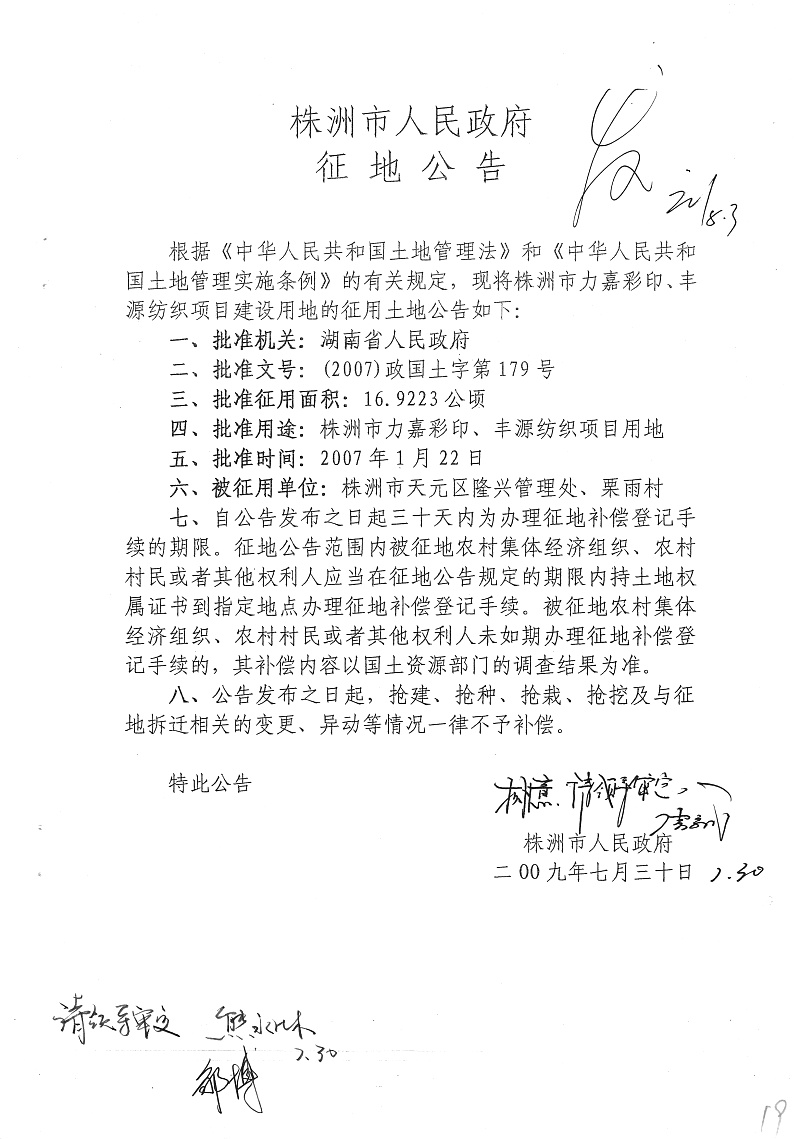 株洲市人民政府
征地公告
发
8.3
根据《中华人民共和国土地管理法》和《中华人民共和
国土地管理实施条例》的有关规定，现将株洲市力嘉彩印、丰
源纺织项目建设用地的征用土地公告如下：
一、批准机关：湖南省人民政府
二、批准文号：(2007)政国土字第179号
三、批准征用面积：16.9223公顷
四、批准用途：株洲市力嘉彩印、丰源纺织项目用地
五、批准时间：2007年1月22日
六、被征用单位：株洲市天元区隆兴管理处、栗雨村
七、自公告发布之日起三十天内为办理征地补偿登记手
续的期限。征地公告范围内被征地农村集体经济组织、农村
村民或者其他权利人应当在征地公告规定的期限内持土地权
属证书到指定地点办理征地补偿登记手续。被征地农村集体
经济组织、农村村民或者其他权利人未如期办理征地补偿登
记手续的，其补偿内容以国土资源部门的调查结果为准。
八、公告发布之日起，抢建、抢种、抢栽、抢挖及与征
地拆迁相关的变更、异动等情况一律不予补偿。
特此公告
请领导审定
株洲市人民政府
二00九年七月三十日 7.30
请领导审定
7.30
19